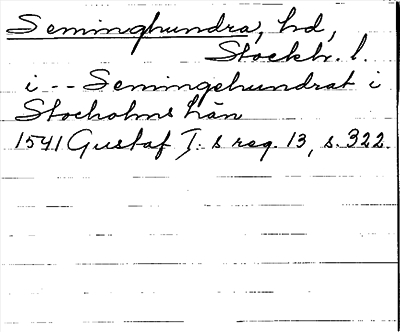 Seminghundra, hd,
Stockh. l.
i -- Semingehundrat i
Stocholms Län
1541 Gustaf I: s reg. 13, s. 322.